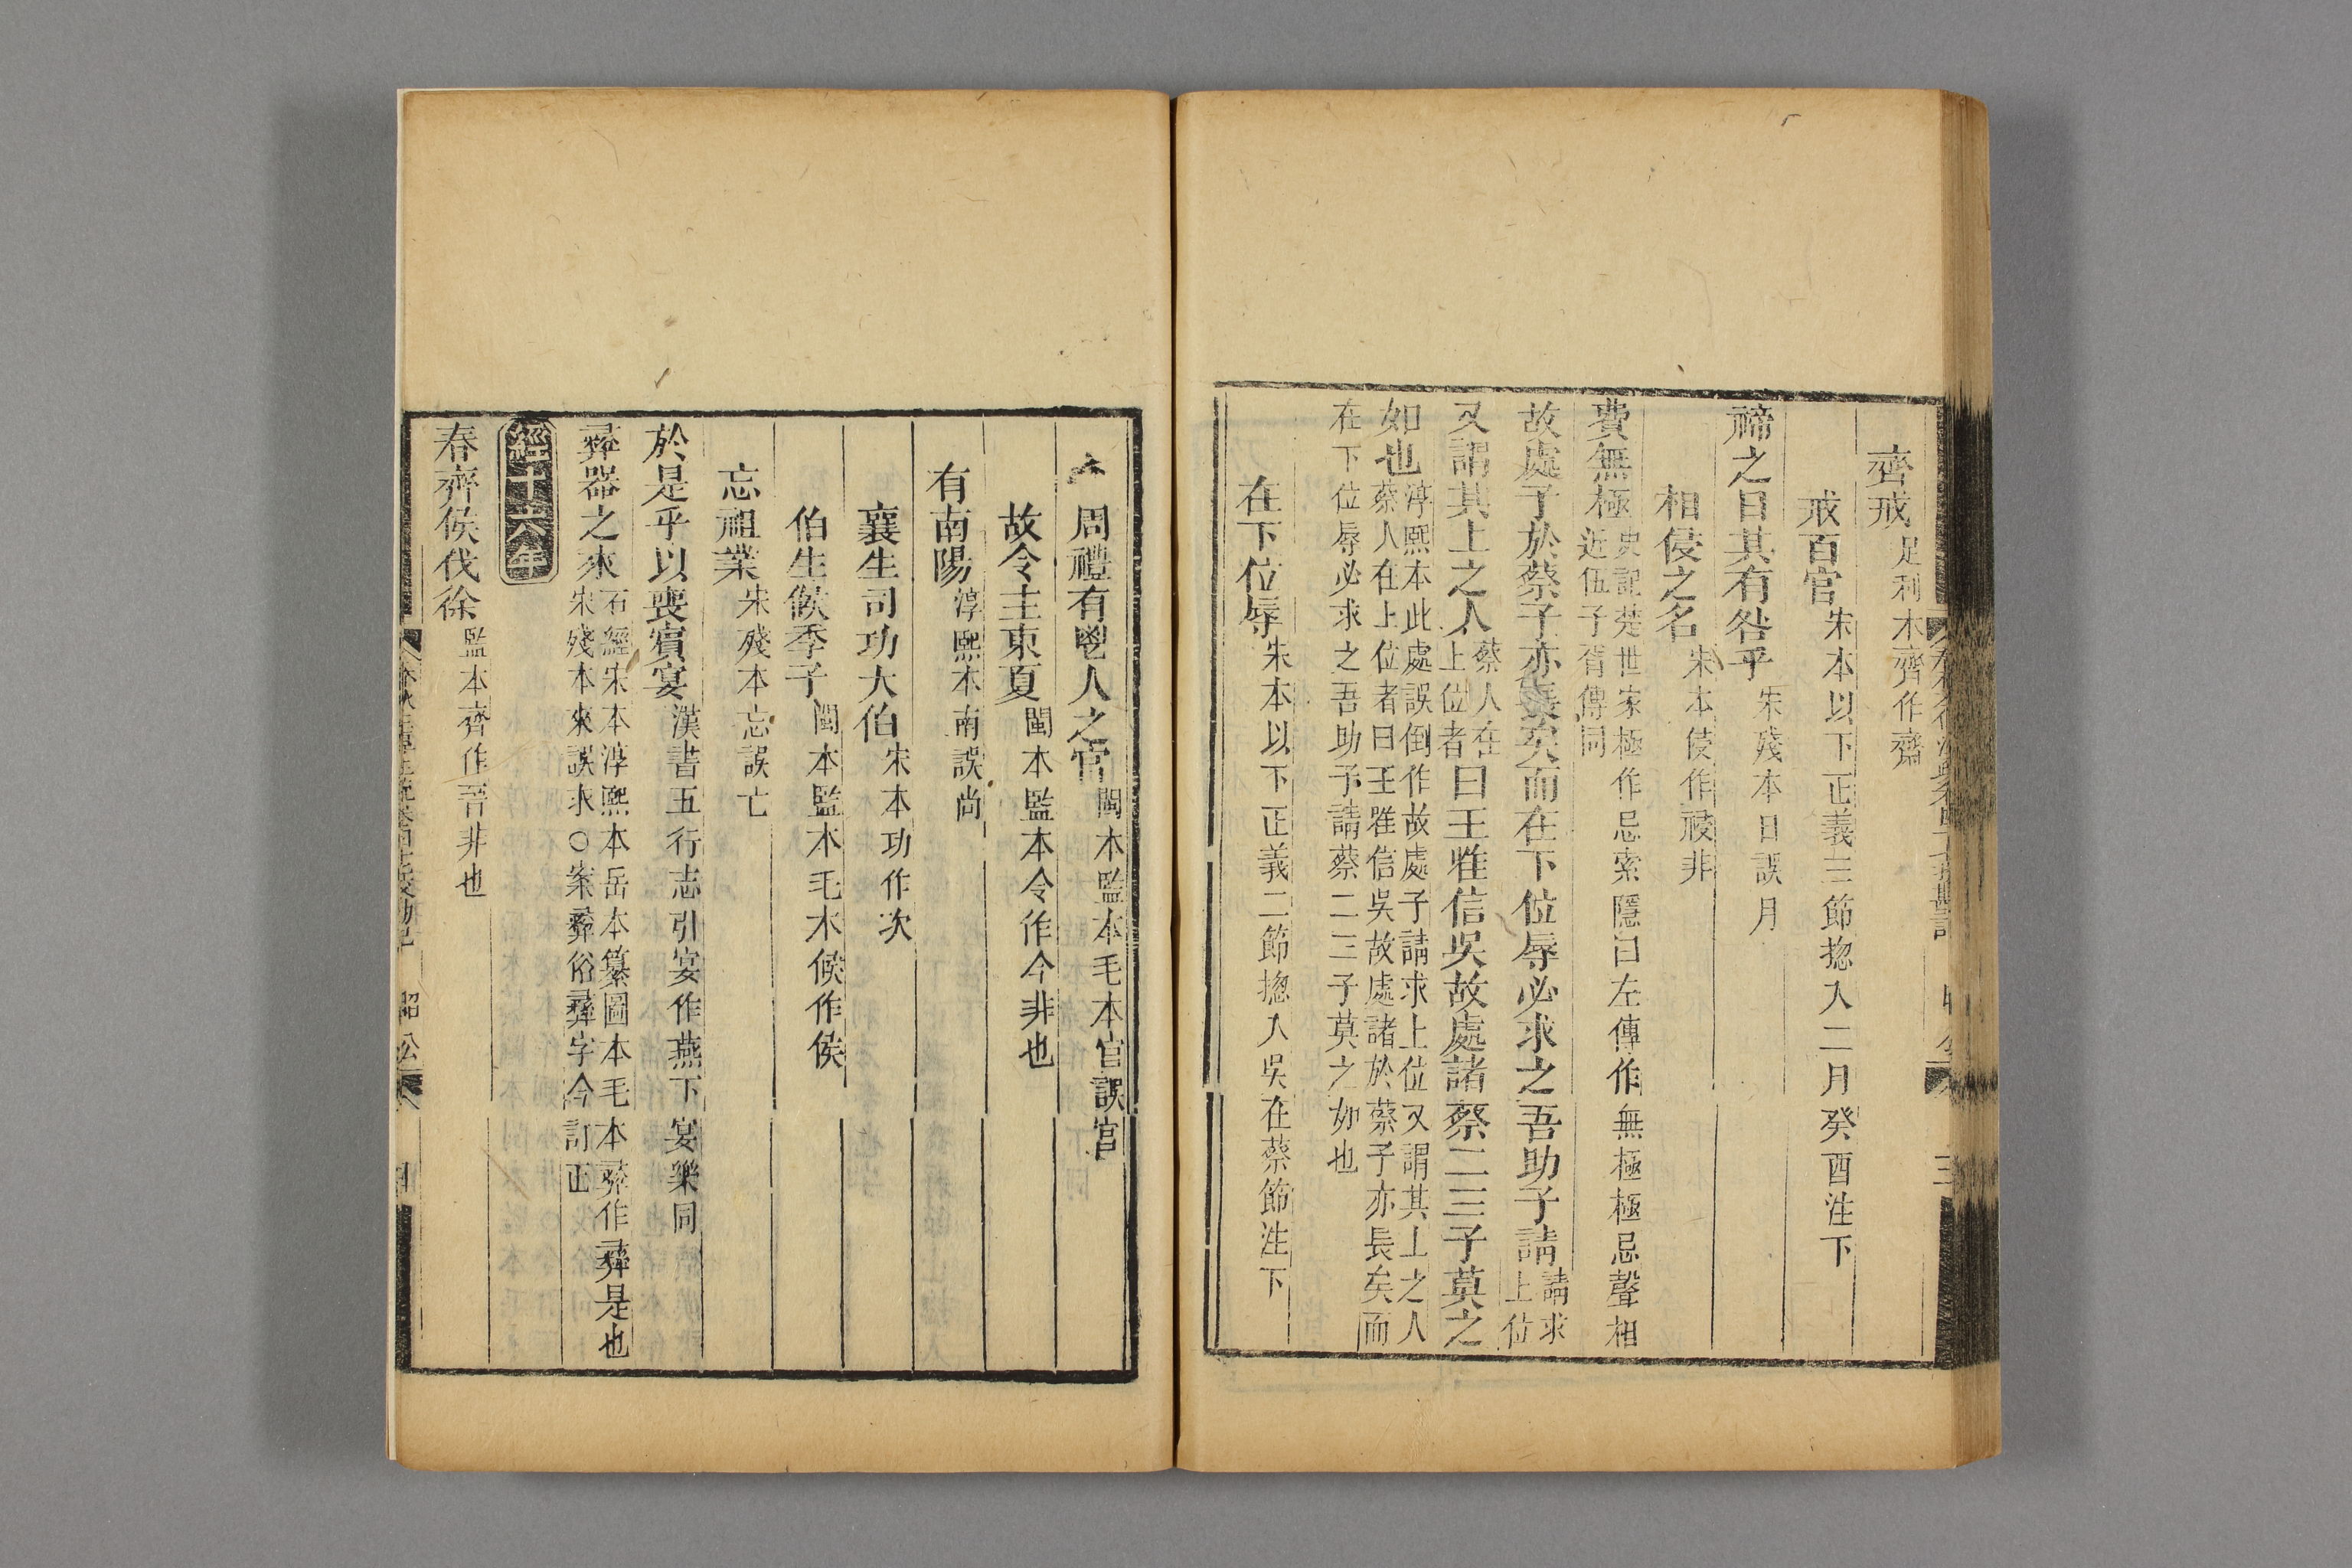 齊戒足利本齊作齋
戒百官宋本以下正義三節揔入二月癸酉注下
禘之日其有咎乎宋殘本日誤月
相侵之名宋本侵作祲非
費無極史記楚世家極作忌索隱曰左傳作無極極忌聲相近伍子胥傳同
故處子於蔡子亦長矣而在下位辱必求之吾助子請請求上位
又謂其上之人蔡人在上位者曰王唯信吳故處諸蔡二三子莫之
如也淳熙本此處誤倒作故處子請求上位又謂其上之人蔡人在上位者曰王唯信吳故處諸於蔡子亦長矣而
在下位辱必求之吾助子請蔡二三子莫之如也
在下位辱宋本以下正義二節揔入吳在蔡節注下
周禮有鬯人之官閩本監本毛本官誤宫
故令主東夏閩本監本令作今非也
有南陽淳熙本南誤尚
襄生司功大伯宋本功作次
伯生候季子閩本監本毛本候作侯
忘祖業宋殘本忘誤亡
於是乎以喪賓宴漢書五行志引宴作燕下宴樂同
彝器之來石經宋本淳熙本岳本纂圖本毛本彛作彝是也宋殘本來誤求○案彛俗彝字今訂正
經十六年
春齊侯伐徐監本齊作晉非也
昭公